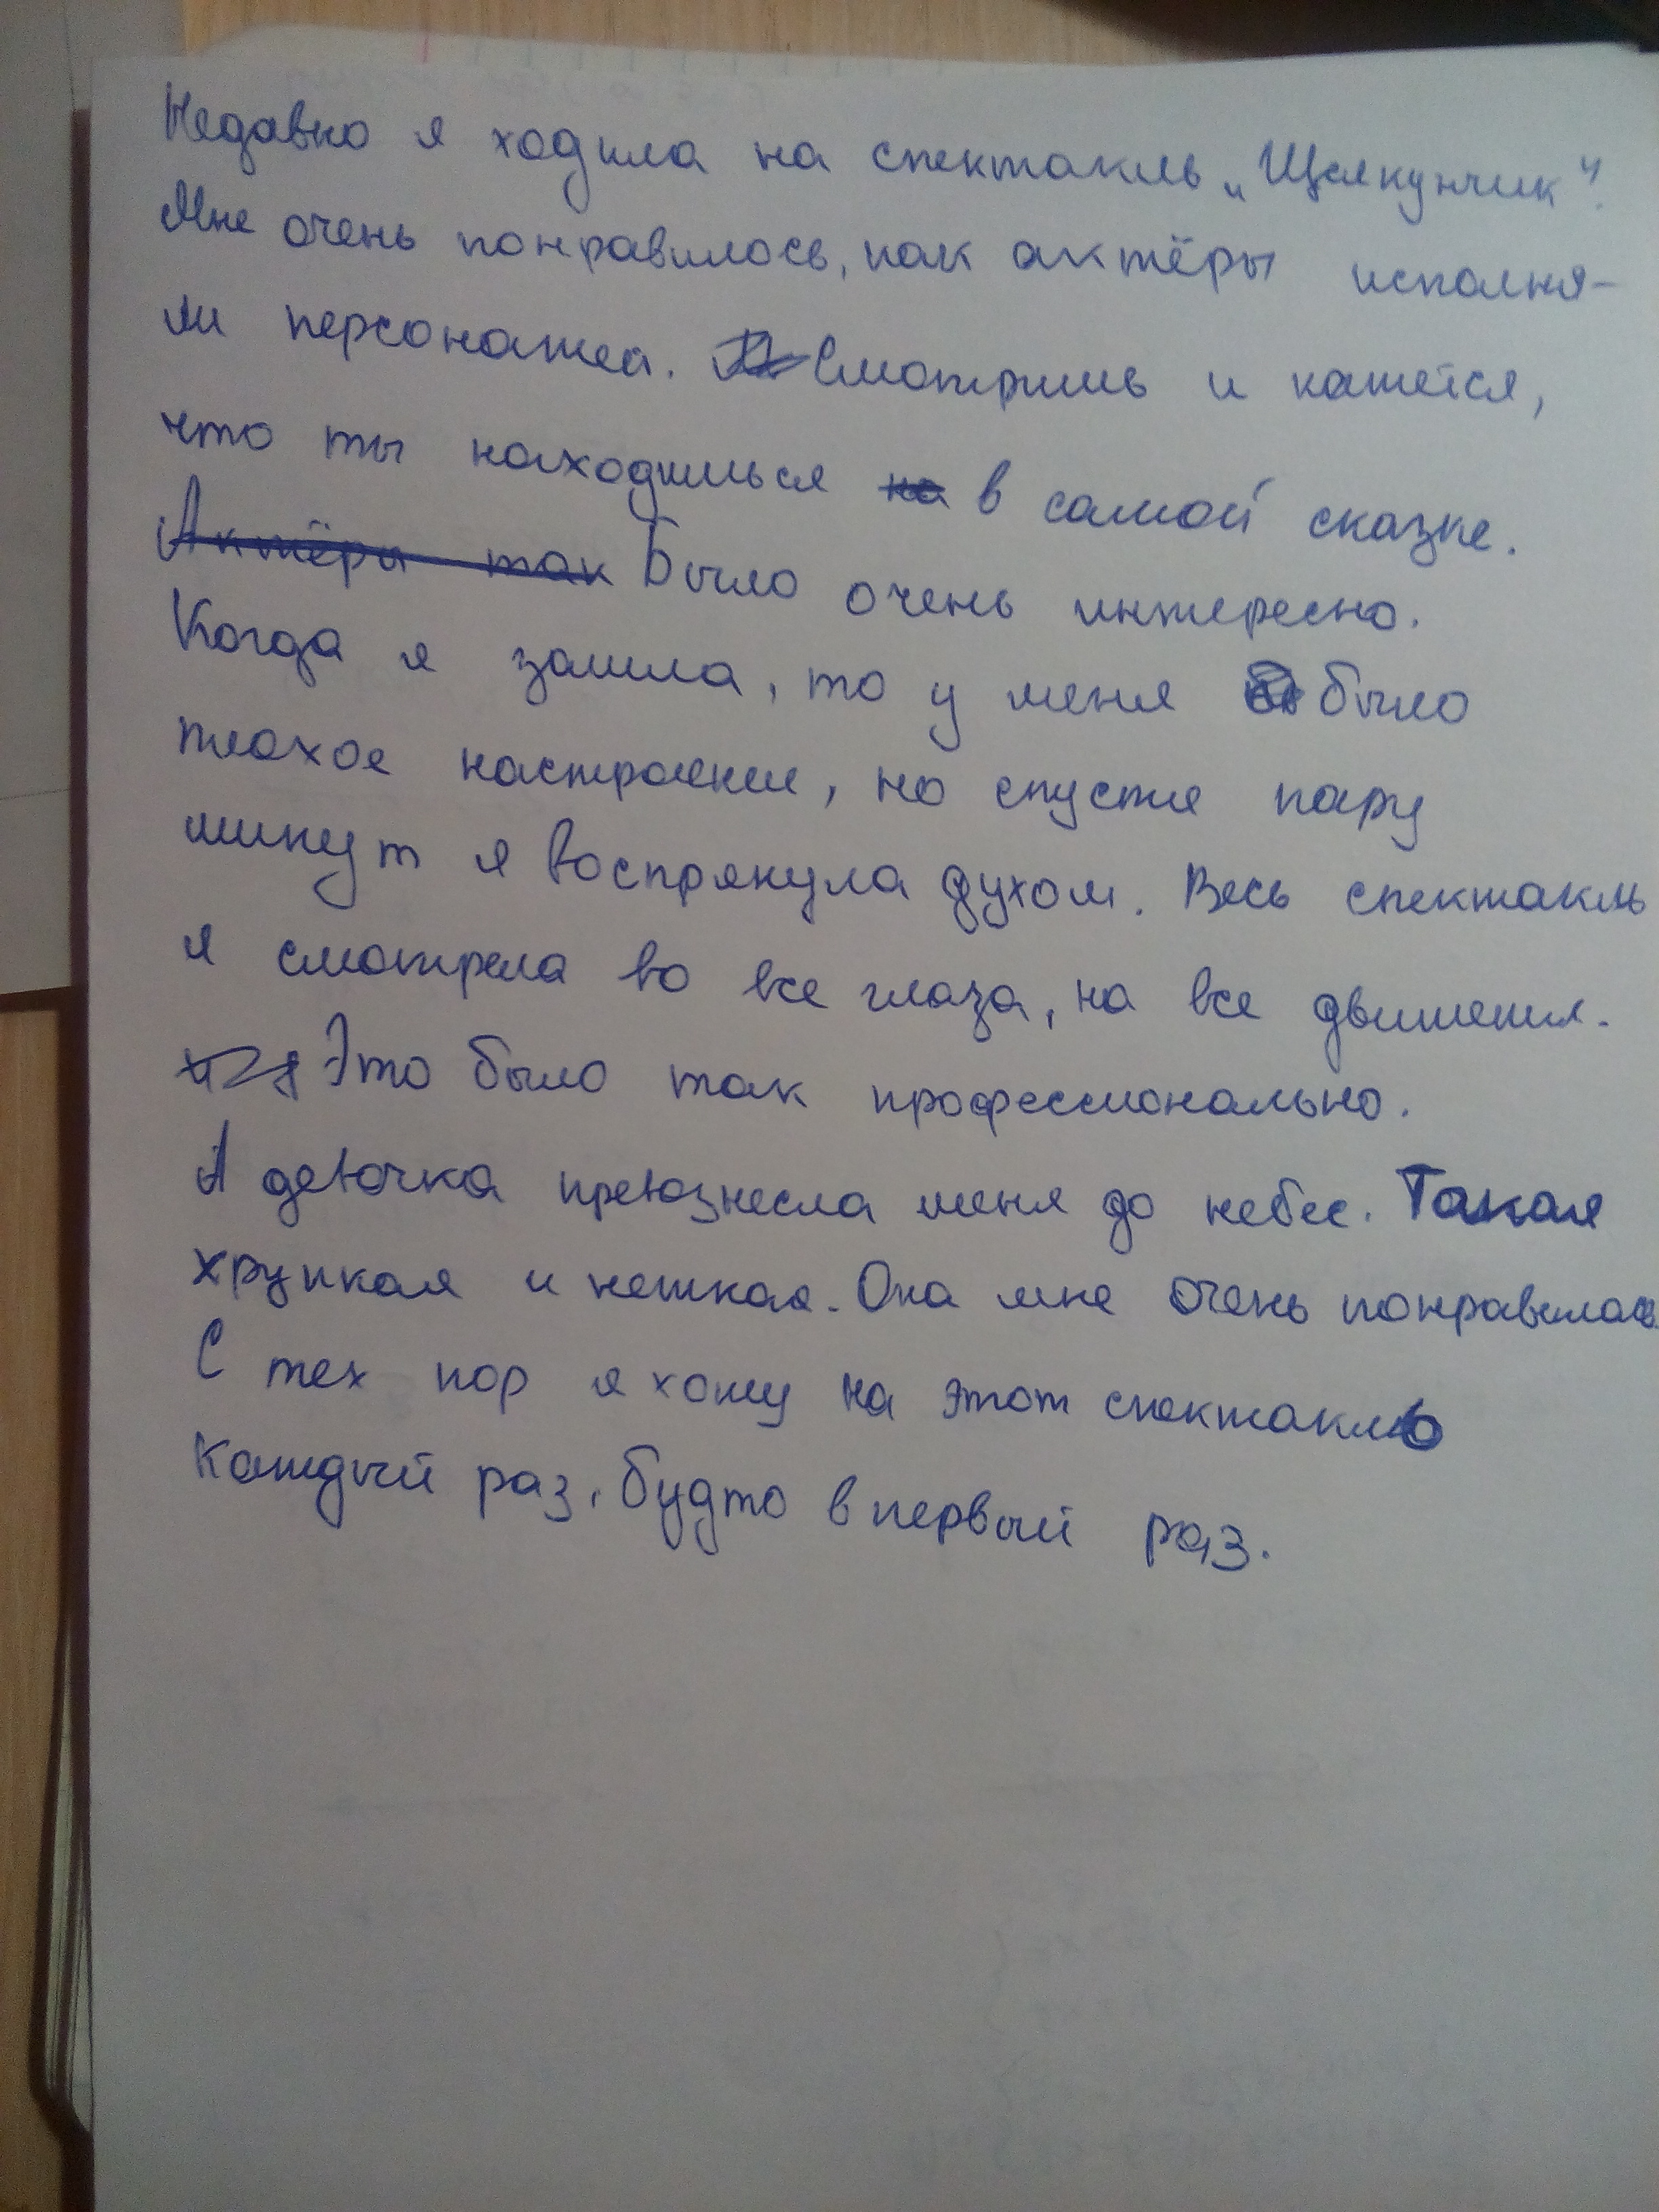 Недавно я ходила на спектакль „Щелкунчик".
Мне очень понравилось, как актёры исполня-
ли персонажеа. Смотришь и кажется,
что ты находишься на в самой сказке.
Актёры так Было очень интересно.
Когда я зашла, то у меня было
плохое настроение, но спустя пару
минут я воспрянула духом. Весь спектакль
я смотрела во все глаза, на все движения.
Это было так профессионально.
А девочка превознесла меня до небес. Такая
хрупкая и нежная. Она мне очень понравилась
С тех пор я хожу на этот спектакль
каждый раз, будто в первый раз.